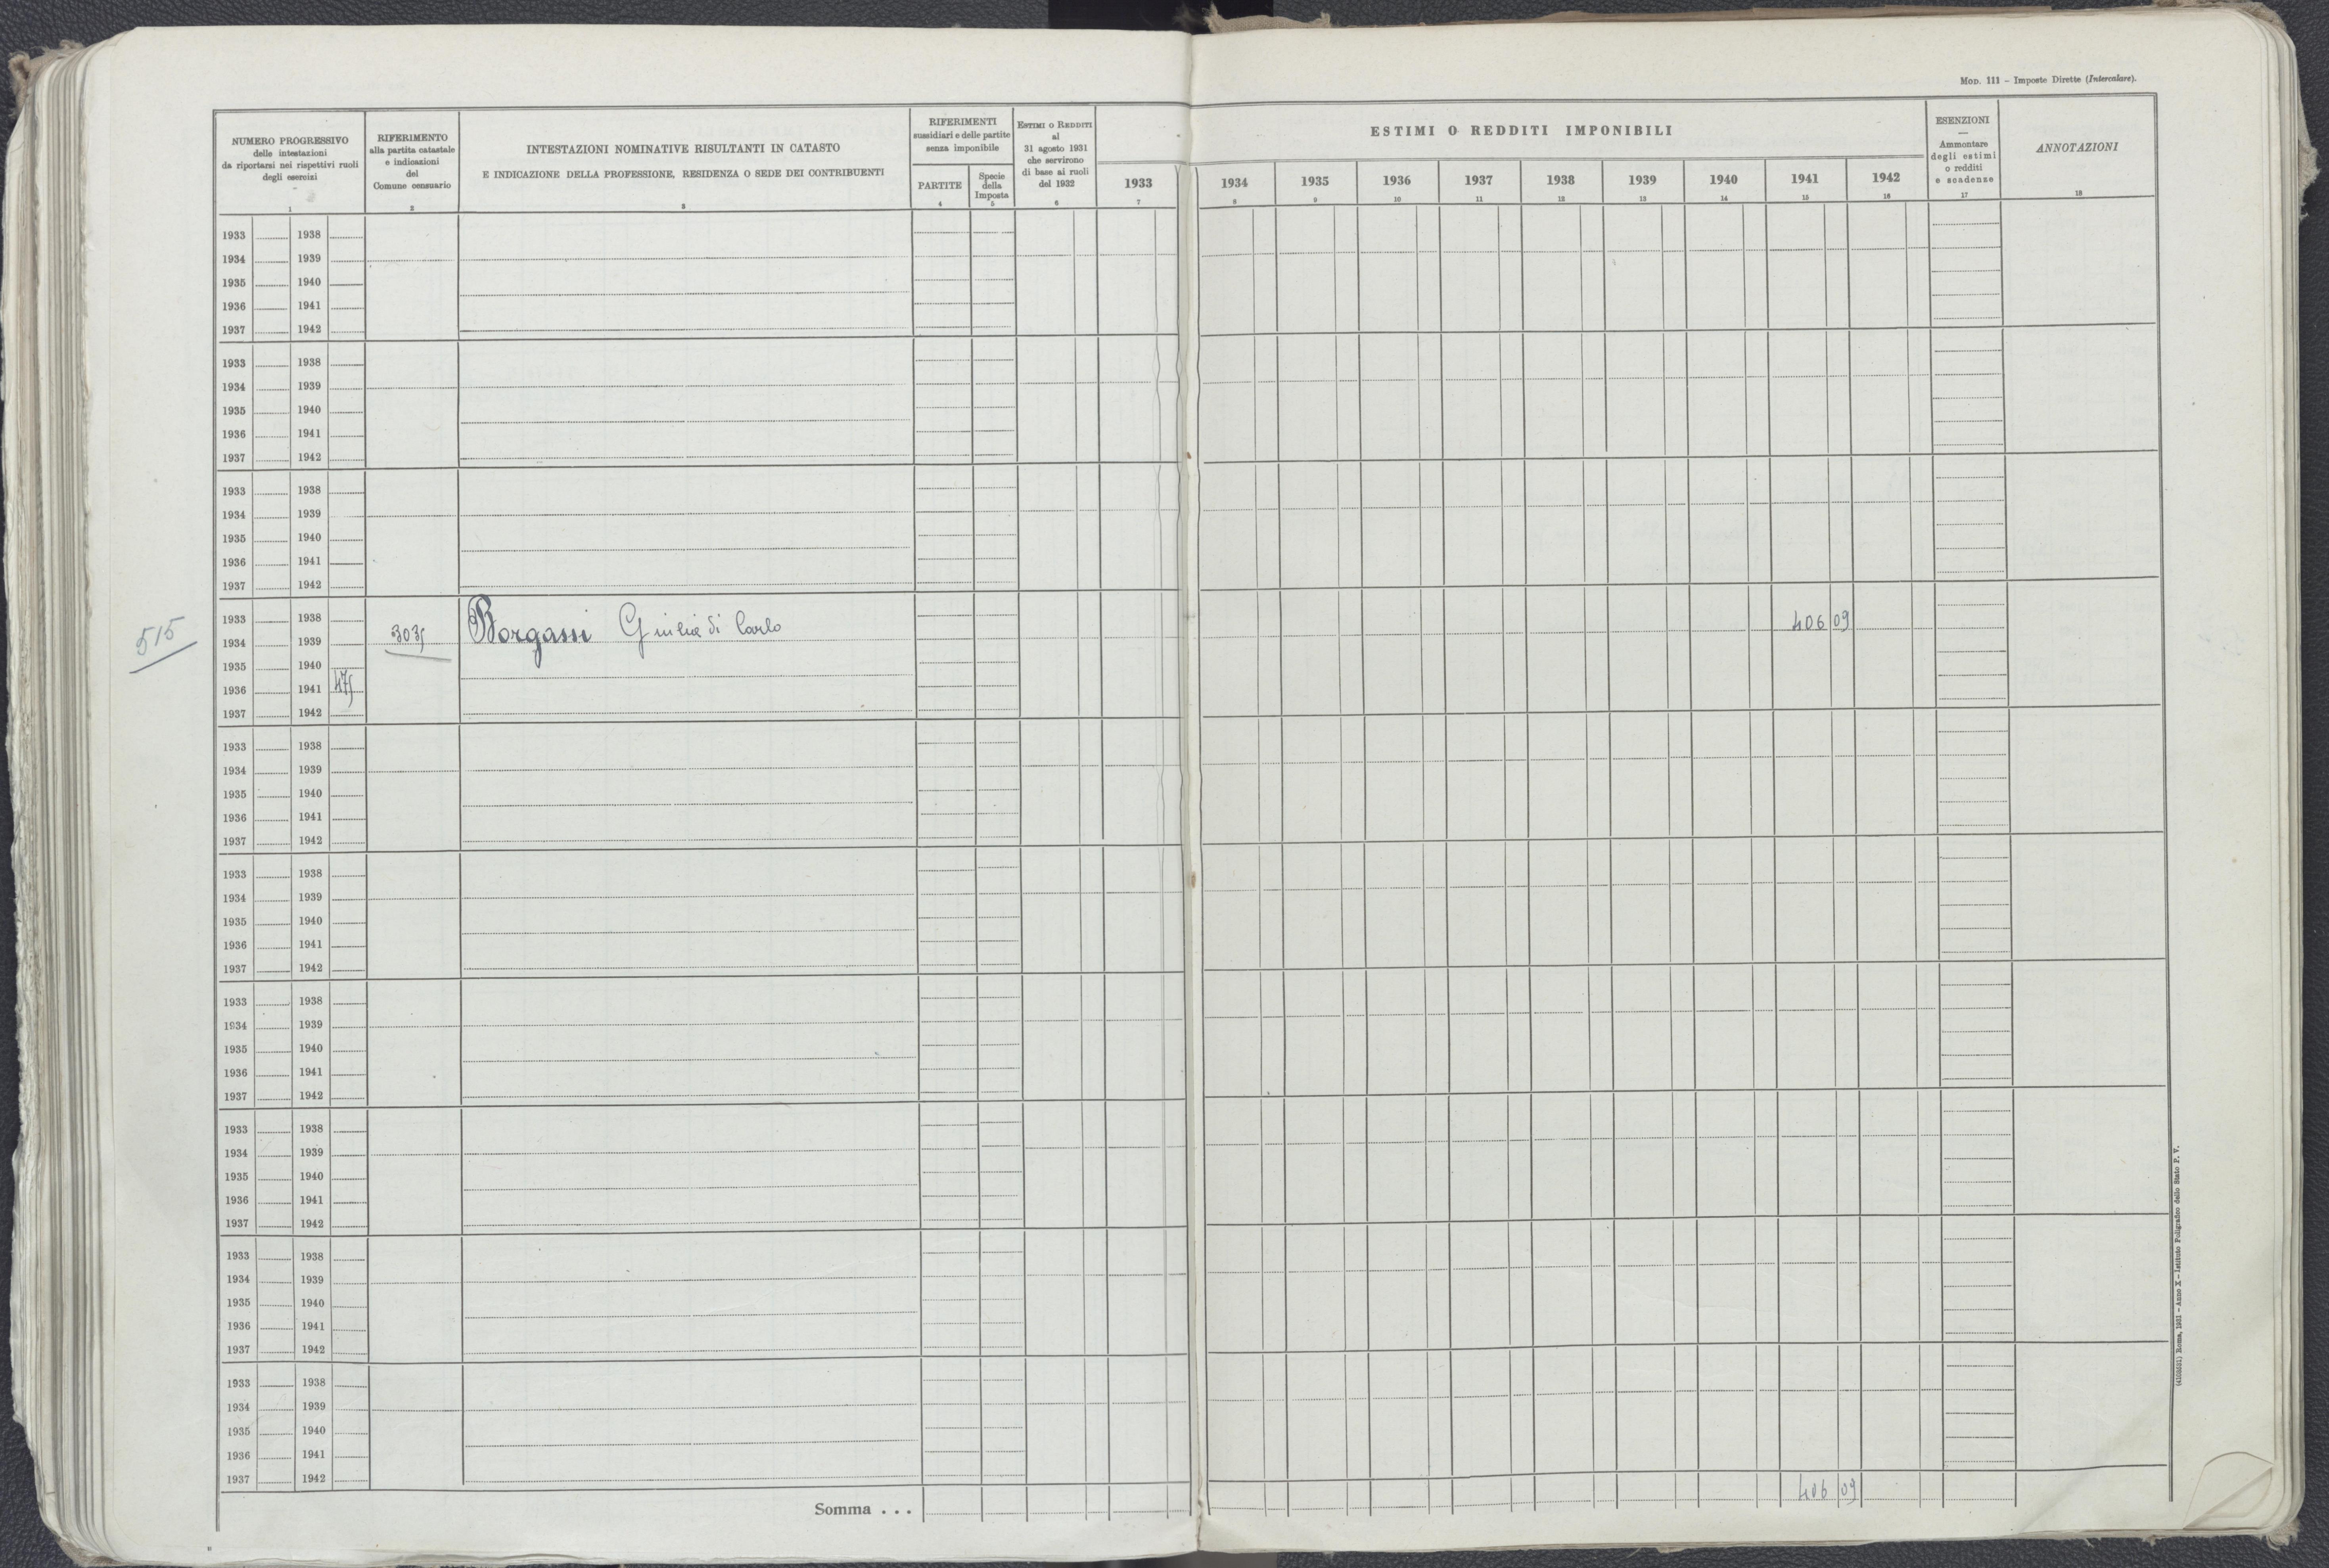 Mod. 111 – Imposte Dirette (Intercalare).
NUMERO PROGRESSIVO
delle intestazioni
da riportarsi nei rispettivi ruoli
degli esercizi
1
RIFERIMENTO
alla partita catastale
e indicazioni
del
Comune censuario
2
INTESTAZIONI NOMINATIVE RISULTANTI IN CATASTO
E INDICAZIONE DELLA PROFESSIONE, RESIDENZA O SEDE DEI CONTRIBUENTI
3
RIFERIMENTI
sussidiari e delle partite
senza imponibile
PARTITE
4
Specie
della
Imposta
5
Estimi o Redditi
al
31 agosto 1931
che servirono
di base ai ruoli
del 1932
6
ESTIMI O REDDITI IMPONIBILI
1933 1934 1935 1936 1937 1938 1939 1940 1941 1942
7 8 9 10 11 12 13 14 15 16
ESENZIONI
—
Ammontare
degli estimi
o redditi
e scadenze
17
ANNOTAZIONI
18
1933 1938
1934 1939
1935 1940
1936 1941
1937 1942
1933 1938
1934 1939
1935 1940
1936 1941
1937 1942
1933 1938
1934 1939
1935 1940
1936 1941
1937 1942
515
1933 1938
1934 1939 3035 Borgassi Giulia di Carlo 406 09
1935 1940
1936 1941 475
1937 1942
1933 1938
1934 1939
1935 1940
1936 1941
1937 1942
1933 1938
1934 1939
1935 1940
1936 1941
1937 1942
1933 1938
1934 1939
1935 1940
1936 1941
1937 1942
1933 1938
1934 1939
1935 1940
1936 1941
1937 1942
1933 1938
1934 1939
1935 1940
1936 1941
1937 1942
1933 1938
1934 1939
1935 1940
1936 1941
1937 1942
Somma . . . 406 09
Roma, 1931 – Anno X – Istituto Poligrafico dello Stato P. V.